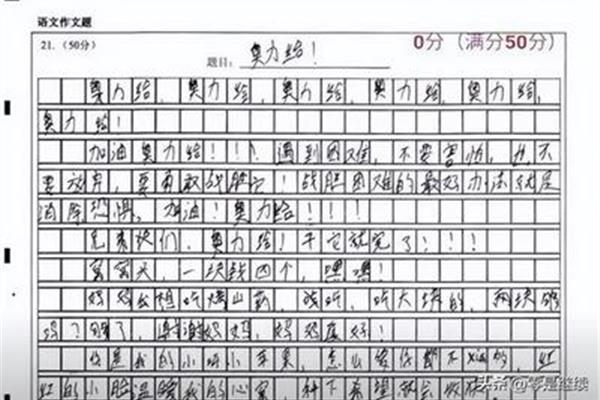 语文作文题
21.（50分） 0分（满分50分）
题目：奥力给！
奥力给，奥力给，奥力给，奥力给，奥力给，
奥力给！
加油奥力给！！！遇到困难，不要害怕，也不
要放弃，要勇敢战胜它！战胜困难的最好办法就是
消除恐惧，加油！奥力给！！！
兄弟们，奥力给！干它就完了！！！
窝窝头，一块钱四个，嘿嘿！
妈妈 想吃烤山药，吃大块的，两块够
吗？够了，谢谢妈妈，妈妈真好！
你是我的小呀小苹果，怎么爱你都不 ，红
红的小脸温暖我的心窝，种下希望就会收获
头条@零是继续